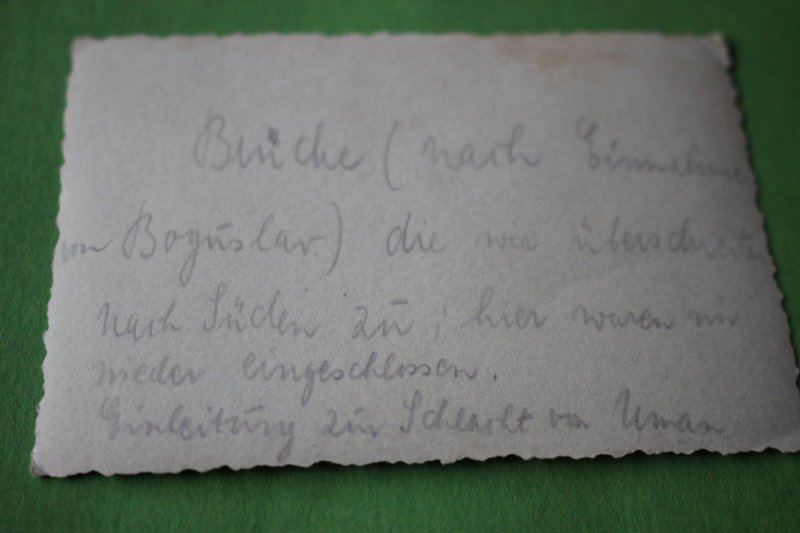 Brücke (nach Einnahme
von Boguslav) die wir überschreiten
nach Süden zu; hier waren wir
wieder eingeschlossen.
Einleitung zur Schlacht von Uman